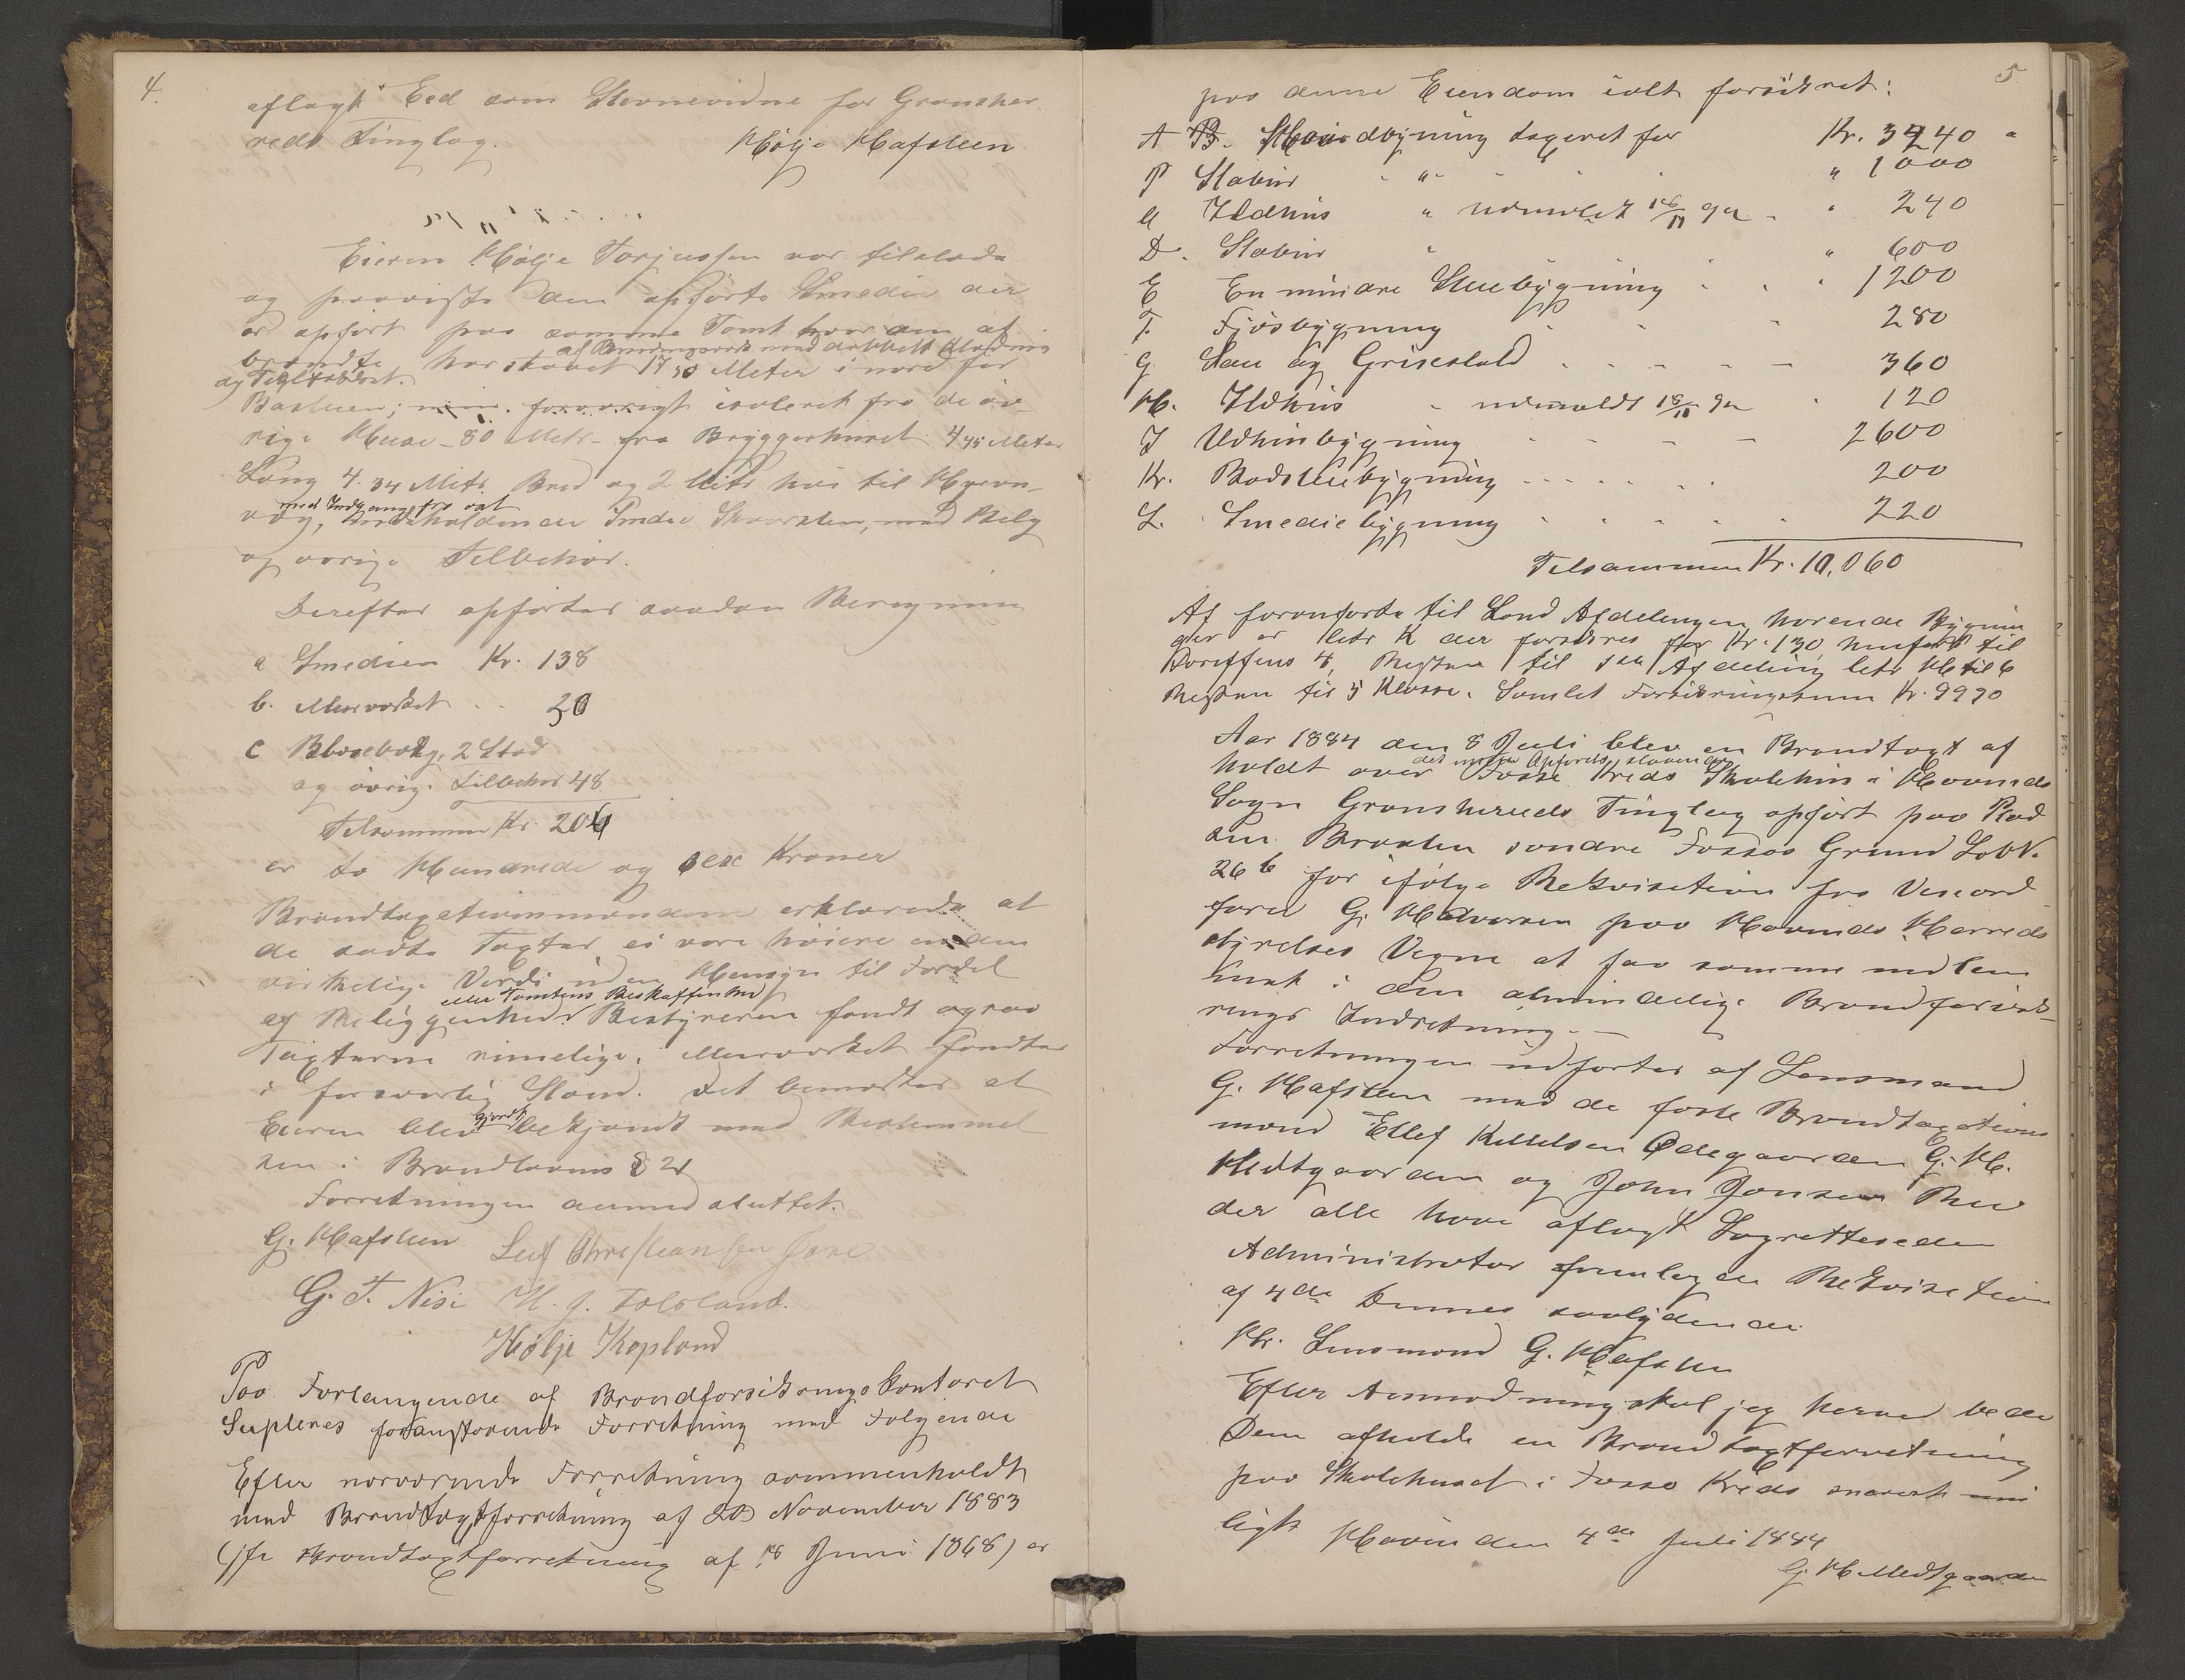 4.
aflagt Eed som Stevnevidne for Gransher-
reds Tinglag.
Hølje Hafsteen
Eieren Hølje Torjussen var tilstede
og paaviste den opførte Smedie der
er opført paa samme Tomt hvor den af
brændte har staaet 17 50 Meter i nord for
af Bindingsværk med dobbelt Klædning
og Teglstensret.
Badstuen; forøvrigt isoleret fra de øv-
rige Huse - 80 Metr - fra Bryggerhuset. 4 75 Meter
Lang 4.34 Metr Bred og 2 Metr høi til
med Indgang fra øst
indeholdende Smedie Skorsten, med Belg
og øvrige Tilbehør.
Derefter opførtes saadan Beregning
a Smedien Kr. 138
b. Murværket . . 20
c Blæsebælg, 2 Sted
og øvrig. Tilbehør 48
Tilsammen Kr. 206
er to Hundrede og sex Kroner
Brandtaxationsmændene erklærede at
de satte Taxter ei vare høiere end den
virkelige Værdi uden Hensyn til Fordel
eller Tomtens Beskaffenhed
af Beliggenhed. Bestyreren fandt ogsaa
Taxterne rimelige. Murværket fandtes
i forsvarlig Stand. Det bemærkes at
gjordt
Eieren blev bekjendt med Bestemmel
sen i Brandlovens § 21
Forretningen dermed sluttet.
G. Hafsteen Leif Christiansen
G. T. Nisi H. J. Folsland.
Hølje Kopland
Paa Forlangende af Brandforsikringskontoret
Supleres foranstaaende Forretning med Følgende
Efter nærværende Forretning sammenholdt
med Brandtaxtforretning af 20 November 1883
(jfr Brandtaxtforretning af 18 Juni 1868) er
5
paa denne Eiendom ialt forsikret:
A B. Hovedbygning taxeret for Kr. 3240
P Stabur " " 1000
Ildhus " udmeldt 18/11 92 " 240
D. Stabur " " 600
E En mindre Stuebygning 1200
F. Fjøsbygning 280
G Sau og Grisestald 360
H. Ildhus " udmeldt 18/11 92 120
I Udhusbygning 2600
K. Badstuebygning 200
L. Smediebygning 220
Tilsammen Kr. 10,060
Af foranførte til Land Afdelingen hørende Bygnin
ger er letr K der forsikres for Kr. 130 henført til
Tariffens 4, Resten til 1ste Afdeling letr H til 6
Resten til 5 Klasse. Samlet Forsikringssum Kr. 9990
Aar 1884 den 8 Juli blev en Brandtaxt af
det under Opførelse staaende
holdt over Fosse Kreds Skolehus i Hovinds
Sogn Gransherreds Tinglag opført paa Plad
sen Braaten søndre Fossos Grund Løb N.
26 b for ifølge Rekvisition fra Viseord
fører G. Halvorsen paa Hovinds Herreds
styrelses Vegne at faa samme indlem
met i den almindelige Brandforsik-
rings Indretning. -
Forretningen udførtes af Lensmand
G. Hafsteen med de faste Brandtaxations
mænd Ellef Kittelsen Ødegaarden G. H.
Midtgaarden og John Jonsen
der alle have aflagt Lagrettesede
Administrator fremlagde Rekvisition
af 4de Dennes saalydende
Hr. Lensmand G. Hafsten
Efter Anmodning skal jeg herved bede
Dem afholde en Brandtaxtforretning
paa Skolehuset i Fosso Kreds snarest mu
ligt Hovin den 4de Juli 1884
G. H. Midtgaarden